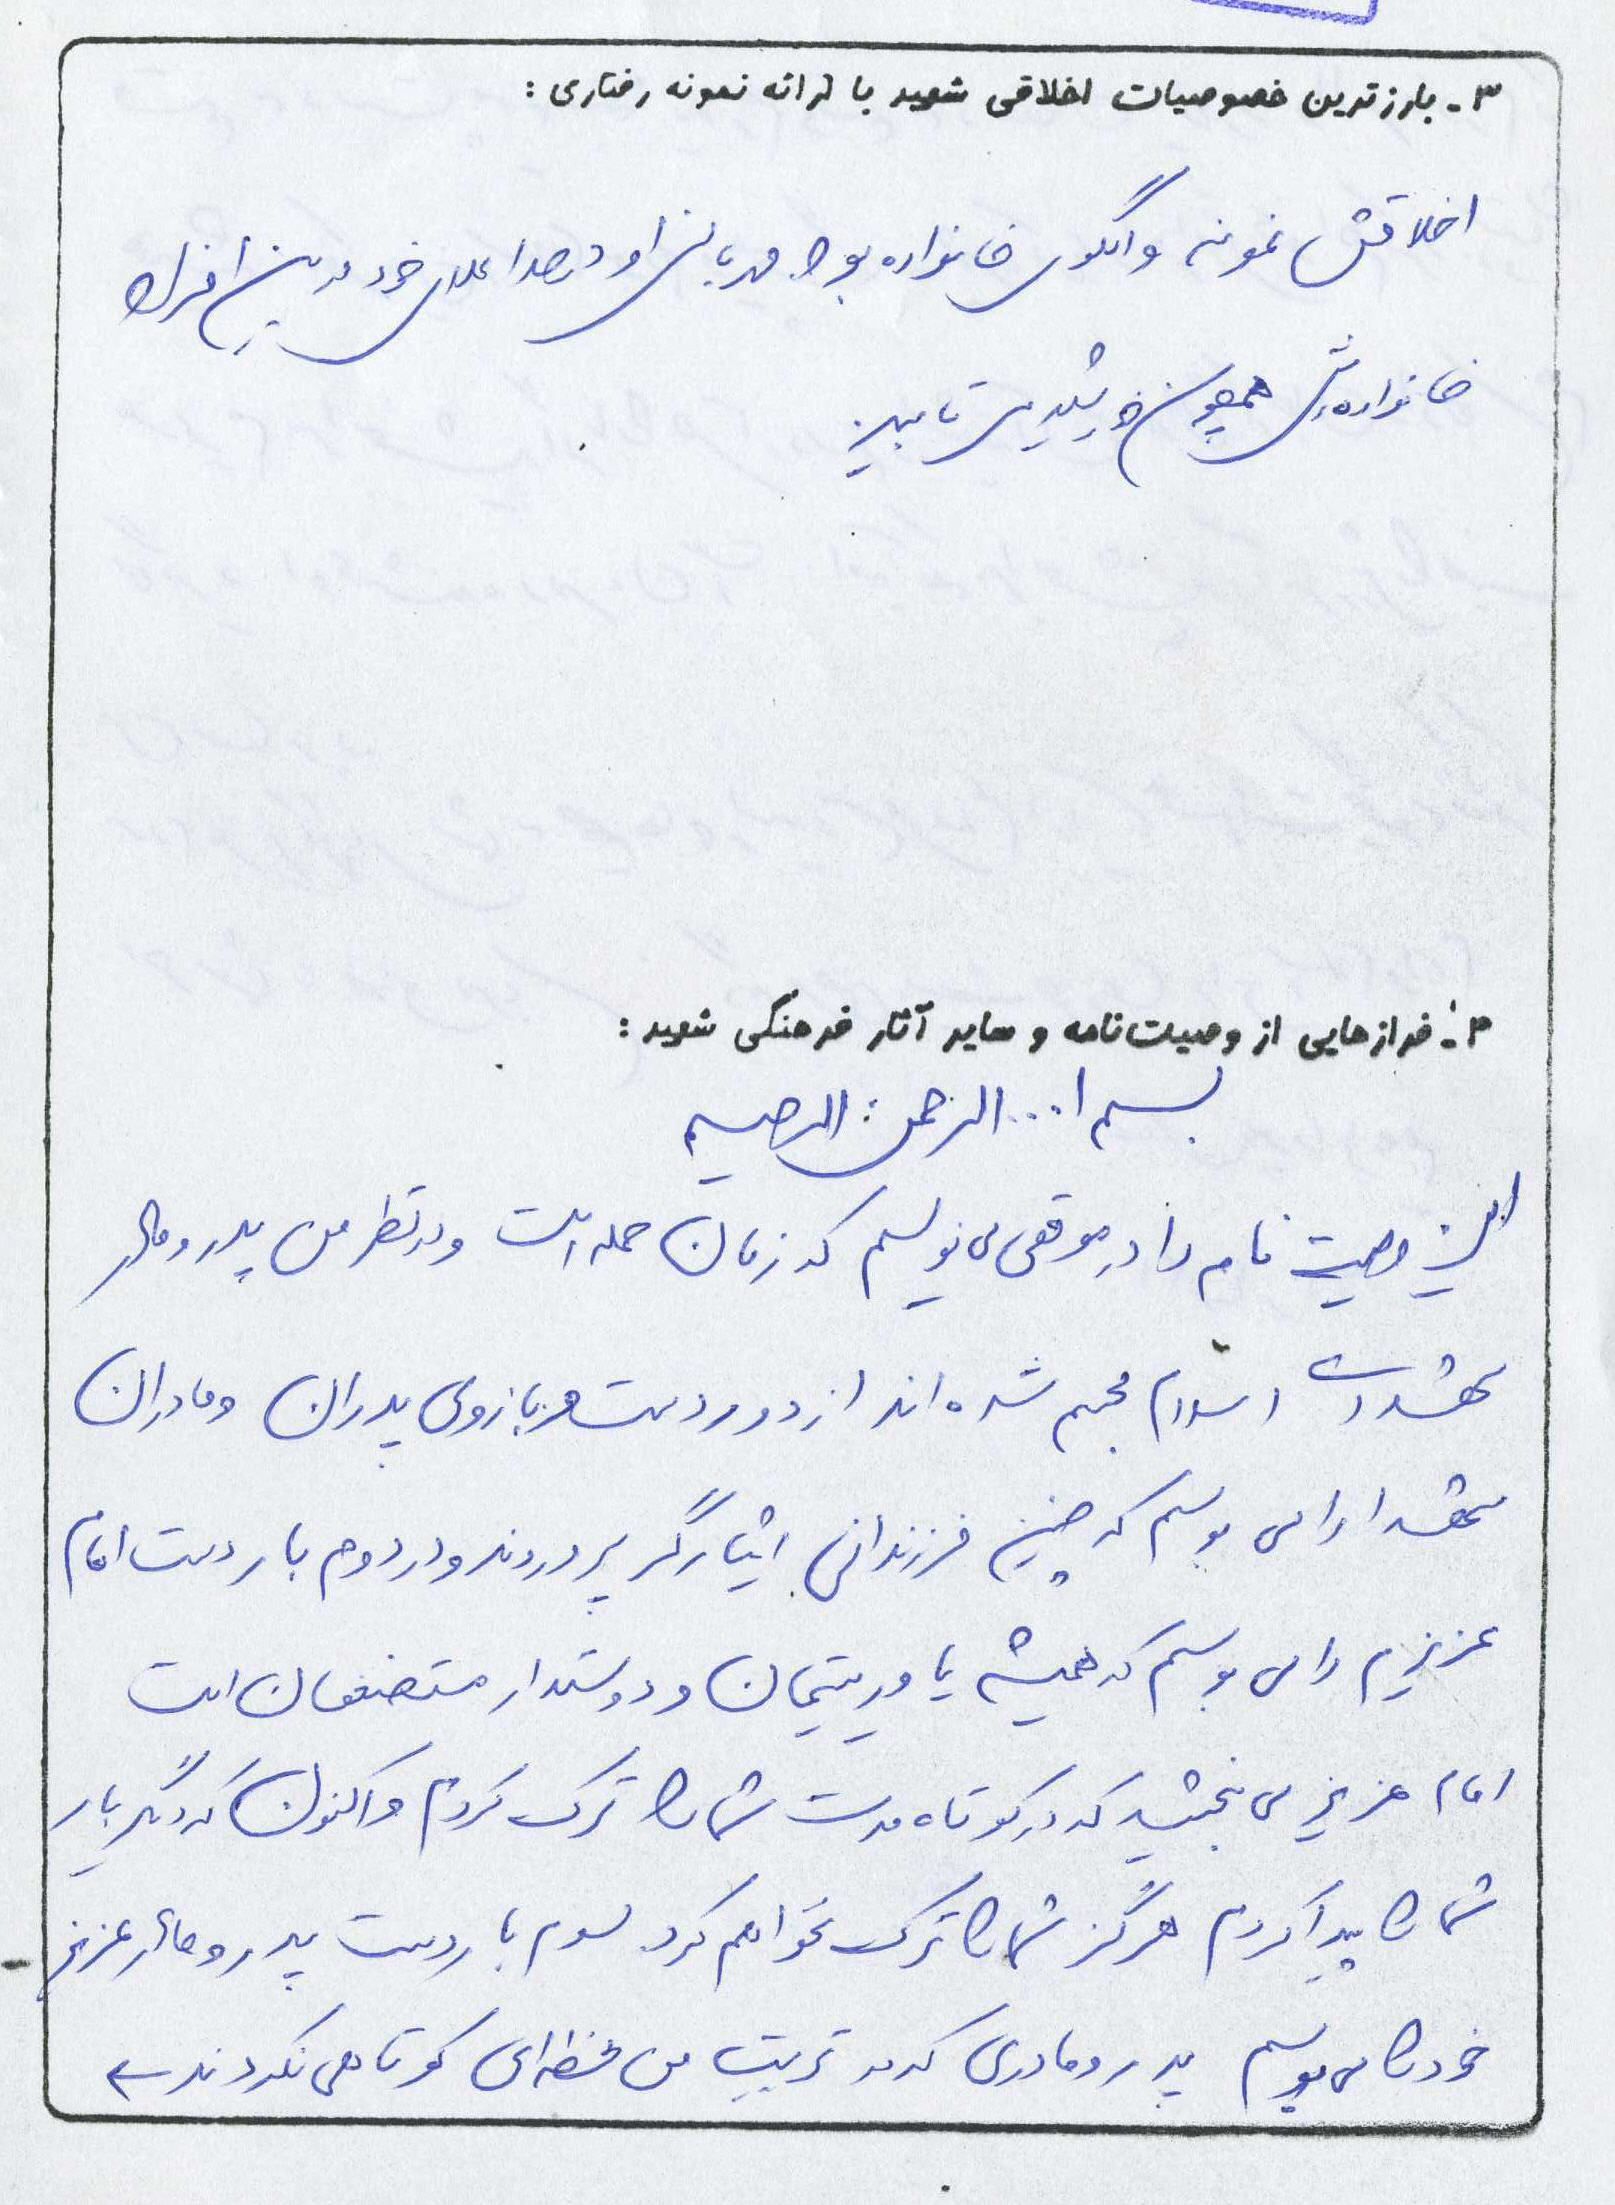 ۳- بارزترین خصوصیات اخلاقی شهید با ارائه نمونه رفتاری :
اخلاقش نمونه و الگوی خانواده بود. مهربانی او در حد اعلای خود در بین افراد
خانواده‌اش همچون خورشید می تابید
۴- فرازهایی از وصیت‌نامه و سایر آثار فرهنگی شهید :
بسم ا... الرحمن الرحیم
این وصیت نامه را در موقعی می نویسم که زمان حمله است و در نظر من پدر و مادر
شهدای اسلام مجسم شده اند از دور دست و بازوی پدران و مادران
شهدا را می بوسم که چنین فرزندانی ایثارگر پروردند و در دوم بار دست امام
عزیزم را می بوسم که همیشه یاور یتیمان و دوستدار مستضعفان است
امام عزیز می بخشید که در کوتاه مدت شما را ترک کردم و اکنون که دگر بار
شما را پیدا کردم هرگز شما را ترک نخواهم کرد. سوم بار دست پدر و مادر عزیز
خود را می بوسم پدر و مادری که در تربیت من لحظه‌ای کوتاهی نکردند